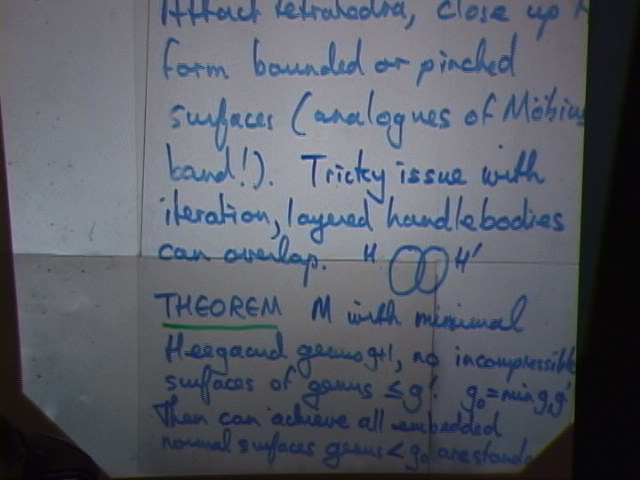 Attract tetrahedra, close up
form bounded or pinched
surfaces (analogues of Möbius
band!). Tricky issue with
iteration, layered handlebodies
can overlap. H H'
THEOREM M with minimal
Heegaard genus g+1, no incompressible
surfaces of genus ≤ g'. g₀ = min g, g'
Then can achieve all embedded
normal surfaces genus < g₀ are